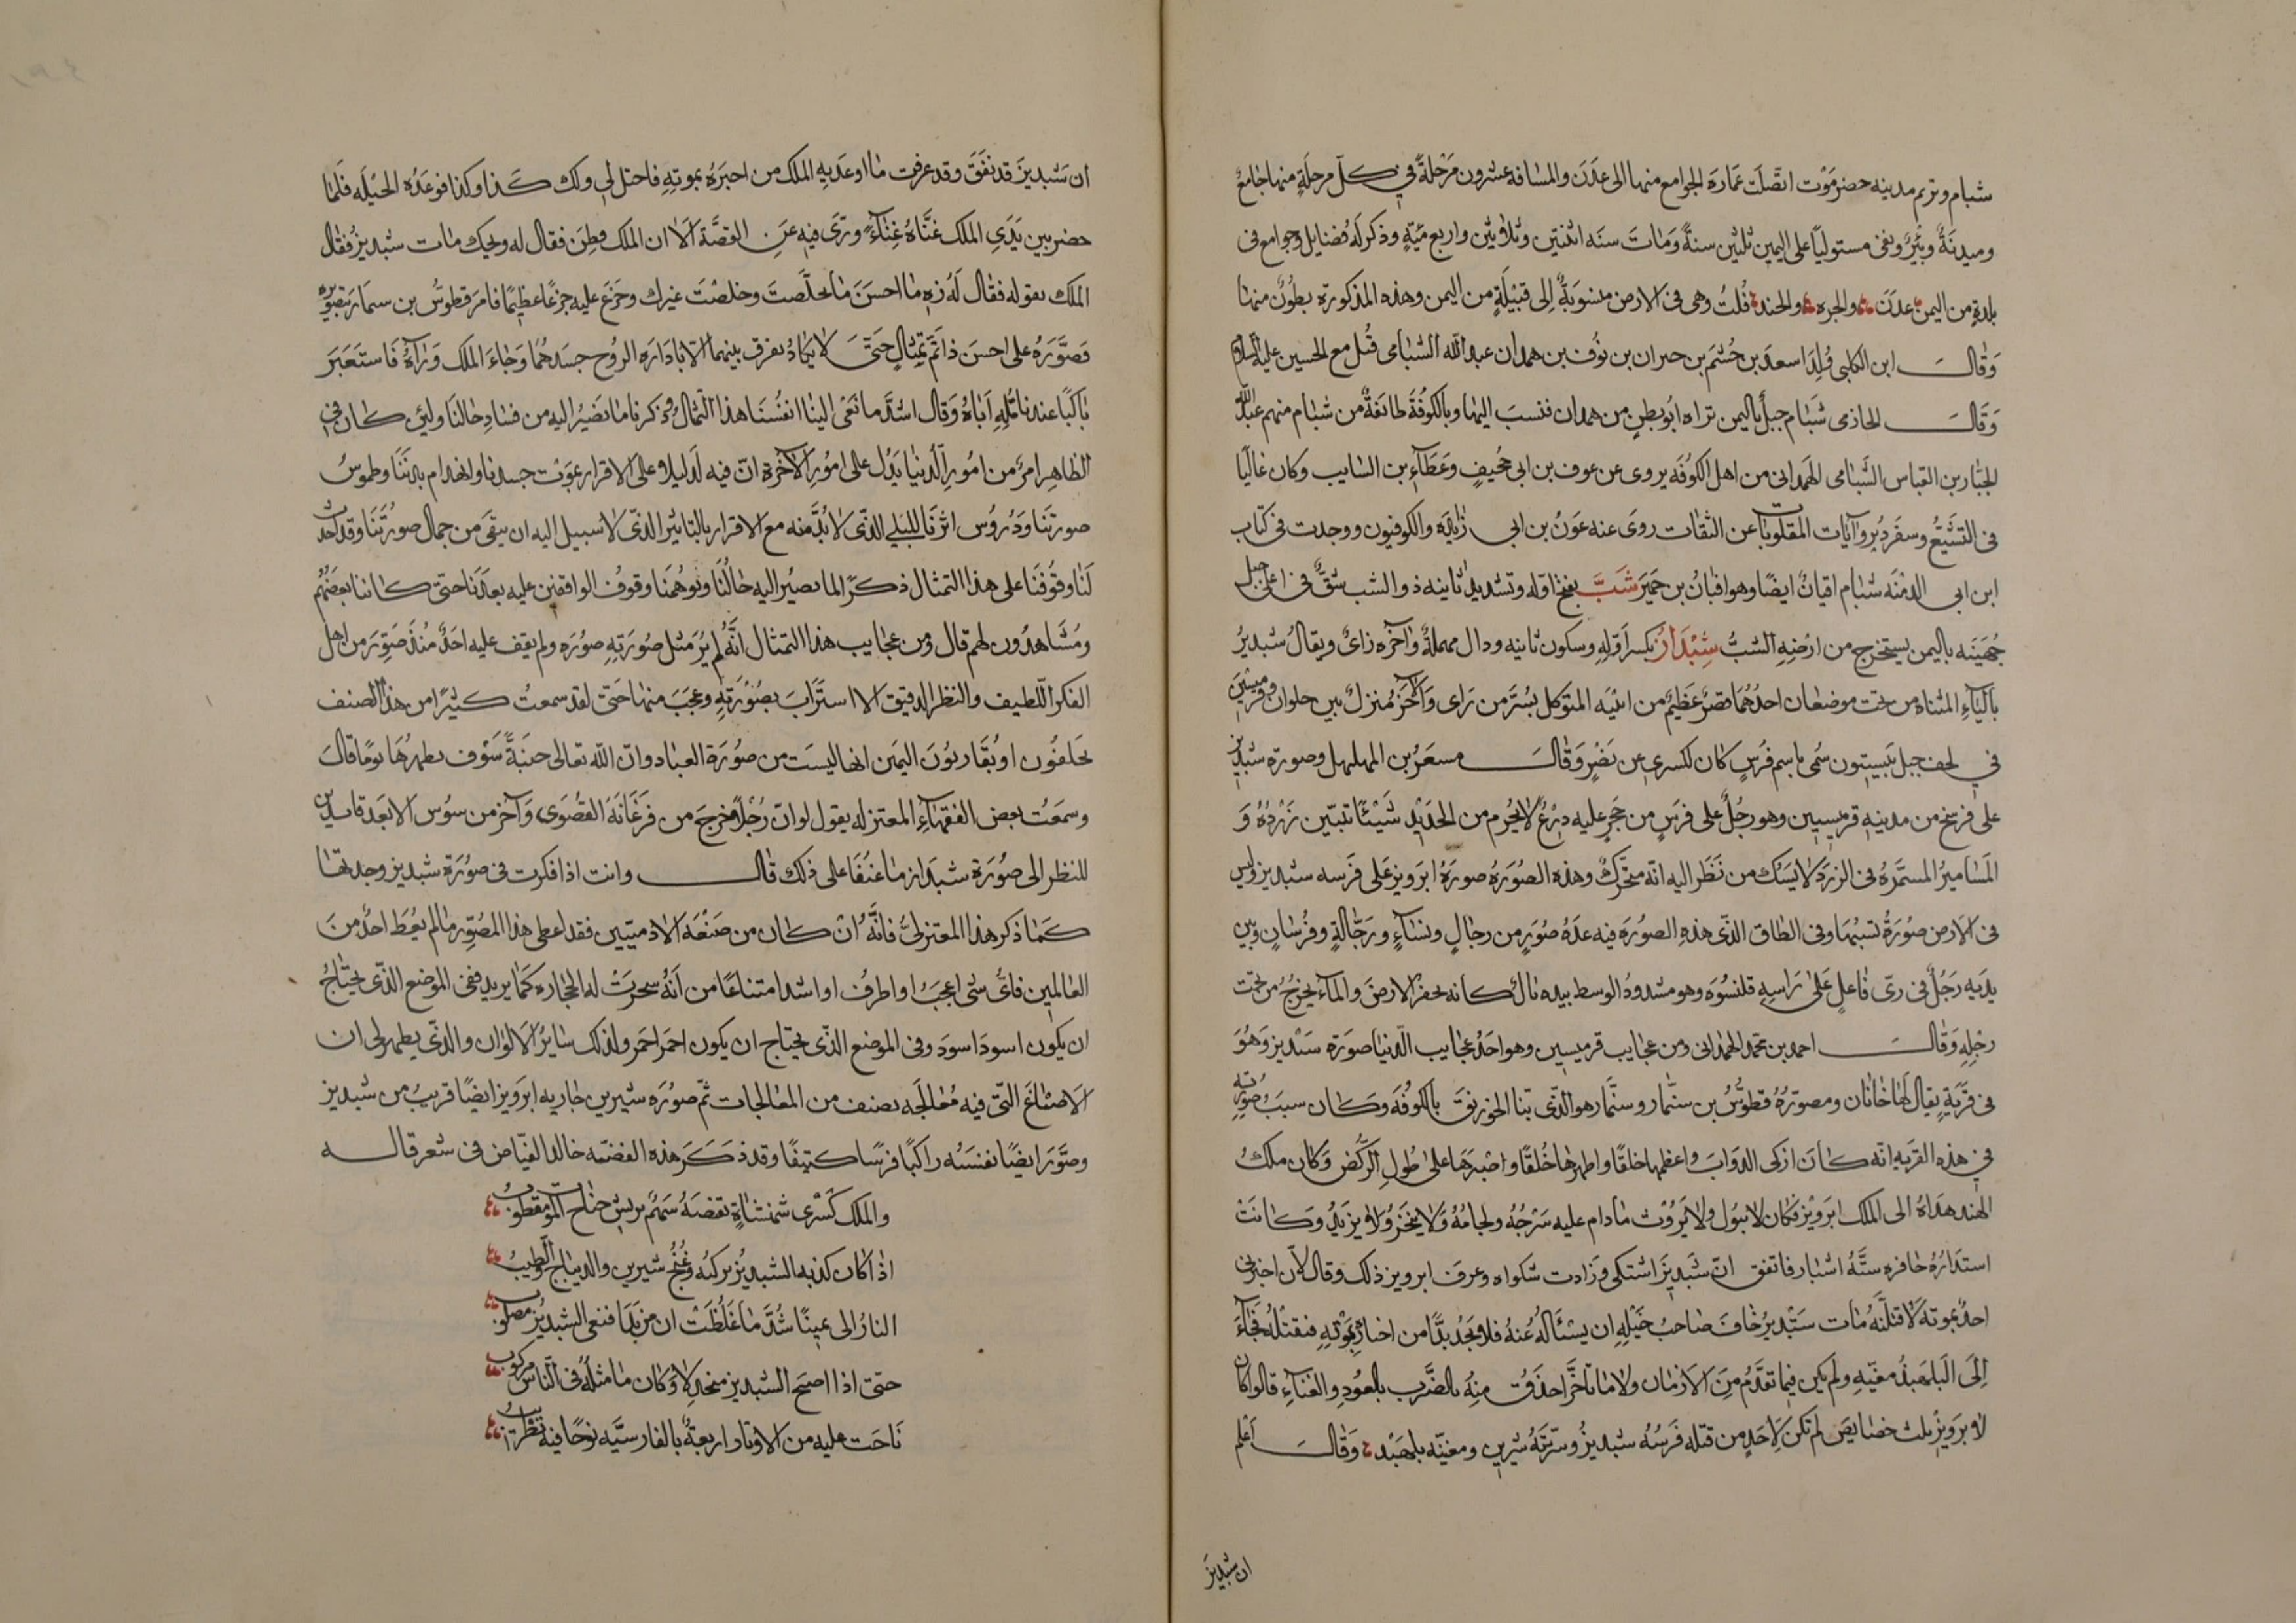 شبام وتريم مدينه حضرموت اتصلت عمارة الجوامع منها الى عدن والمسافه عشرون مرحلة في كل مرحلة منها جامع
وميذنة وبئر وبقى مستوليا على اليمن ثلثين سنة ومات سنه اثنتين وثلاثين واربع مئية وذكر له فضايل وجوامع فى
بلدة من اليمن عدن والجره والجند قلت وهى فى الارض منسوبة إلى قبيلة من اليمن وهذه المذكورة بطون منها
وقال ابن الكلبى فولد اسعد بن جشم بن حبران بن نوف بن همدان عبد الله الشبامى قتل مع الحسين عليه السلام
وقال الحازمى شبام جبل باليمن نزله ابو بطن من همدان فنسب اليها وبالكوفة طائفة من شبام منهم عبد
الجبار بن العباس الشبامى الهمدانى من اهل الكوفه يروى عن عوف بن ابى جحيف وعطاء بن السايب وكان غاليا
فى التشيع وسفرد بروايات المقلوبات عن الثقات روى عنه عون بن ابى زايدة والكوفيون ووجدت فى كتاب
ابن ابى الدمنه شبام اقيان ايضا وهو اقيان بن حمير شب بفتح اوله وتشديد ثانيه ذو الشب شق فى اعلى جبل
جهينه باليمن يستخرج من ارضه الشب شبداز بكسر اوله وسكون ثانيه ودال مهملة وآخره زاى ويقال شبديز
بالياء المثناه من تحت موضعان احدهما قصر عظيم من ابنيه المتوكل بسر من راى والآخر منزل بين حلوان وقرميسين
في لحف جبل بيستون سمى باسم فرس كان لكسرى عن نصر وقال مسعر بن المهلهل وصورة شبديز
على فرسخ من مدينه قرميسين وهو رجل على فرس من حجر عليه درع لا يخرم من الحديد شيئا تبين زرده و
المسامير المسمرة فى الزرد لا يشك من نظر اليه انه متحرك وهذه الصورة صورة ابرويز على فرسه شبديز وليس
فى الارض صورة تشبهها وفى الطاق الذى هذه الصورة فيه عدة صور من رجال ونساء ورجالة وفرسان وبين
يديه رجل فى زى فاعل على راسه قلنسوه وهو مشدود الوسط بيده بال كانه يحفر الارض والماء يخرج من تحت
رجله وقال احمد بن محمد الهمدانى ومن عجايب قرميسين وهو احد عجايب الدنيا صورة شبديز وهو
فى قرية يقال لها خاتان ومصوره قطوس بن سنمار وسنمار هو الذى بنا الخورنق بالكوفه وكان سبب صورته
في هذه القريه انه كان ازكى الدواب واعظمها خلقا واظهرها خلقا واصبرها على طول الركض وكان ملك
الهند هداه الى الملك ابرويز فكان لا يبول ولا يروث ما دام عليه سرجه ولجامه ولا ينخر ولا يزبد وكانت
استدارة حافره سته اشبار فاتفق ان شبديز اشتكى وزادت شكواه وعرف ابرويز ذلك وقال لان اخبرنى
احد بموته لاقتلنه مات شبديز خاف صاحب خيله ان يسئاله عنه فلا يجد بدا من اخباره بموته فيقتله فجاء
إلى البلهبد مغنيه ولم يكن فيما تقدم من الازمان ولا ما تاخر احذق منه بالضرب بالعود والغناء قالوا كان
لابرويز ثلث خصايص لم تكن لاحد من قبله فرسه شبديز وسريته شيرين ومغنيه بلهبد وقال اعلم
ان شبديز
ان شبديز قد نفق وقد عرفت ما اوعد به الملك من اخبره بموته فاحتل لى ولك كذا وكذا فوعده الحيله فلما
حضر بين يدى الملك غناه غناء ورى فيه عن القصة الا ان الملك فطن فقال له ويحك مات شبديز فقال
الملك يقوله فقال له زه ما احسن ما تخلصت وخلصت غيرك وجزع عليه جزعا عظيما فامر قطوس بن سمار بتصويره
فصوره على احسن ذاتم تمثال حتى لا يكاد يفرق بينهما الا بادارة الروح جسدهما وجاء الملك ورآه فاستعبر
باكيا عند تامله اياه وقال اشد ما نعى الينا انفسنا هذا التمثال وذكرنا ما نصير اليه من فساد حالنا ولئن كان في
الظاهر امر من امور الدنيا يدل على امور الآخرة ان فيه لدليلا وعلى الاقرار بموت جسدنا وانهدام بدننا وطموس
صورتنا ودروس اثرنا للبلى الذى لا بد منه مع الاقرار بالتاثير الذى لا سبيل اليه ان يبقى من جمال صورتنا وقد احدث
لنا وقوفنا على هذا التمثال ذكرا لما يصير اليه حالنا وتوهمنا وقوف الواقفين عليه بعدنا حتى كاننا بعضهم
ومشاهدون لهم قال ومن عجايب هذا التمثال انه لم ير مثل صورته صوره ولم يقف عليه احد منذ صور من اهل
الفكر اللطيف والنظر الدقيق الا استراب بصورته وعجب منها حتى لقد سمعت كثيرا من هذا الصنف
يحلفون او يقاربون اليمين انها ليست من صورة العباد وان الله تعالى خبية سوف يظهرها يوما قال
وسمعت بعض الفقهاء المعتزله يقول لو ان رجلا خرج من فرغانة القصوى وآخر من سوس الابعد قاصدين
للنظر الى صورة شبداز ما عنفا على ذلك قال وانت اذا فكرت فى صورة شبديز وجدتها
كما ذكر هذا المعتزلى فانه ان كان من صنعه الادميين فقد اعطى هذا المصور ما لم يعط احد من
العالمين فاى شى اعجب او اظرف او اشد امتناعا من انه سخرت له الحجارة كما يريد ففى الموضع الذى يحتاج
ان يكون اسود اسود وفى الموضع الذى يحتاج ان يكون احمر احمر ولذلك سائر الالوان والذى يظهر لى ان
الاصباغ التى فيه معالجه بصنف من المعالجات ثم صورة شيرين جاريه ابرويز ايضا قريب من شبديز
وصور ايضا نفسه راكبا فرسا كتيفا وقد ذكر هذه القصه خالد الفياض فى شعر قاله
والملك كسرى شهنشاه تقنصه سهم بريش جناح الموت مقطوب
اذ كان لذته الشبديز يركبه وغنج شيرين والديباج والطيب
النار الى يمينا شد ما غلظت ان من بدا فنعى الشبديز مصلوب
حتى اذا اصبح الشبديز منجدلا وكان ما مثله فى الناس مركوب
ناحت عليه من الاوتار اربعة بالفارسيه نوحا فيه تطريب